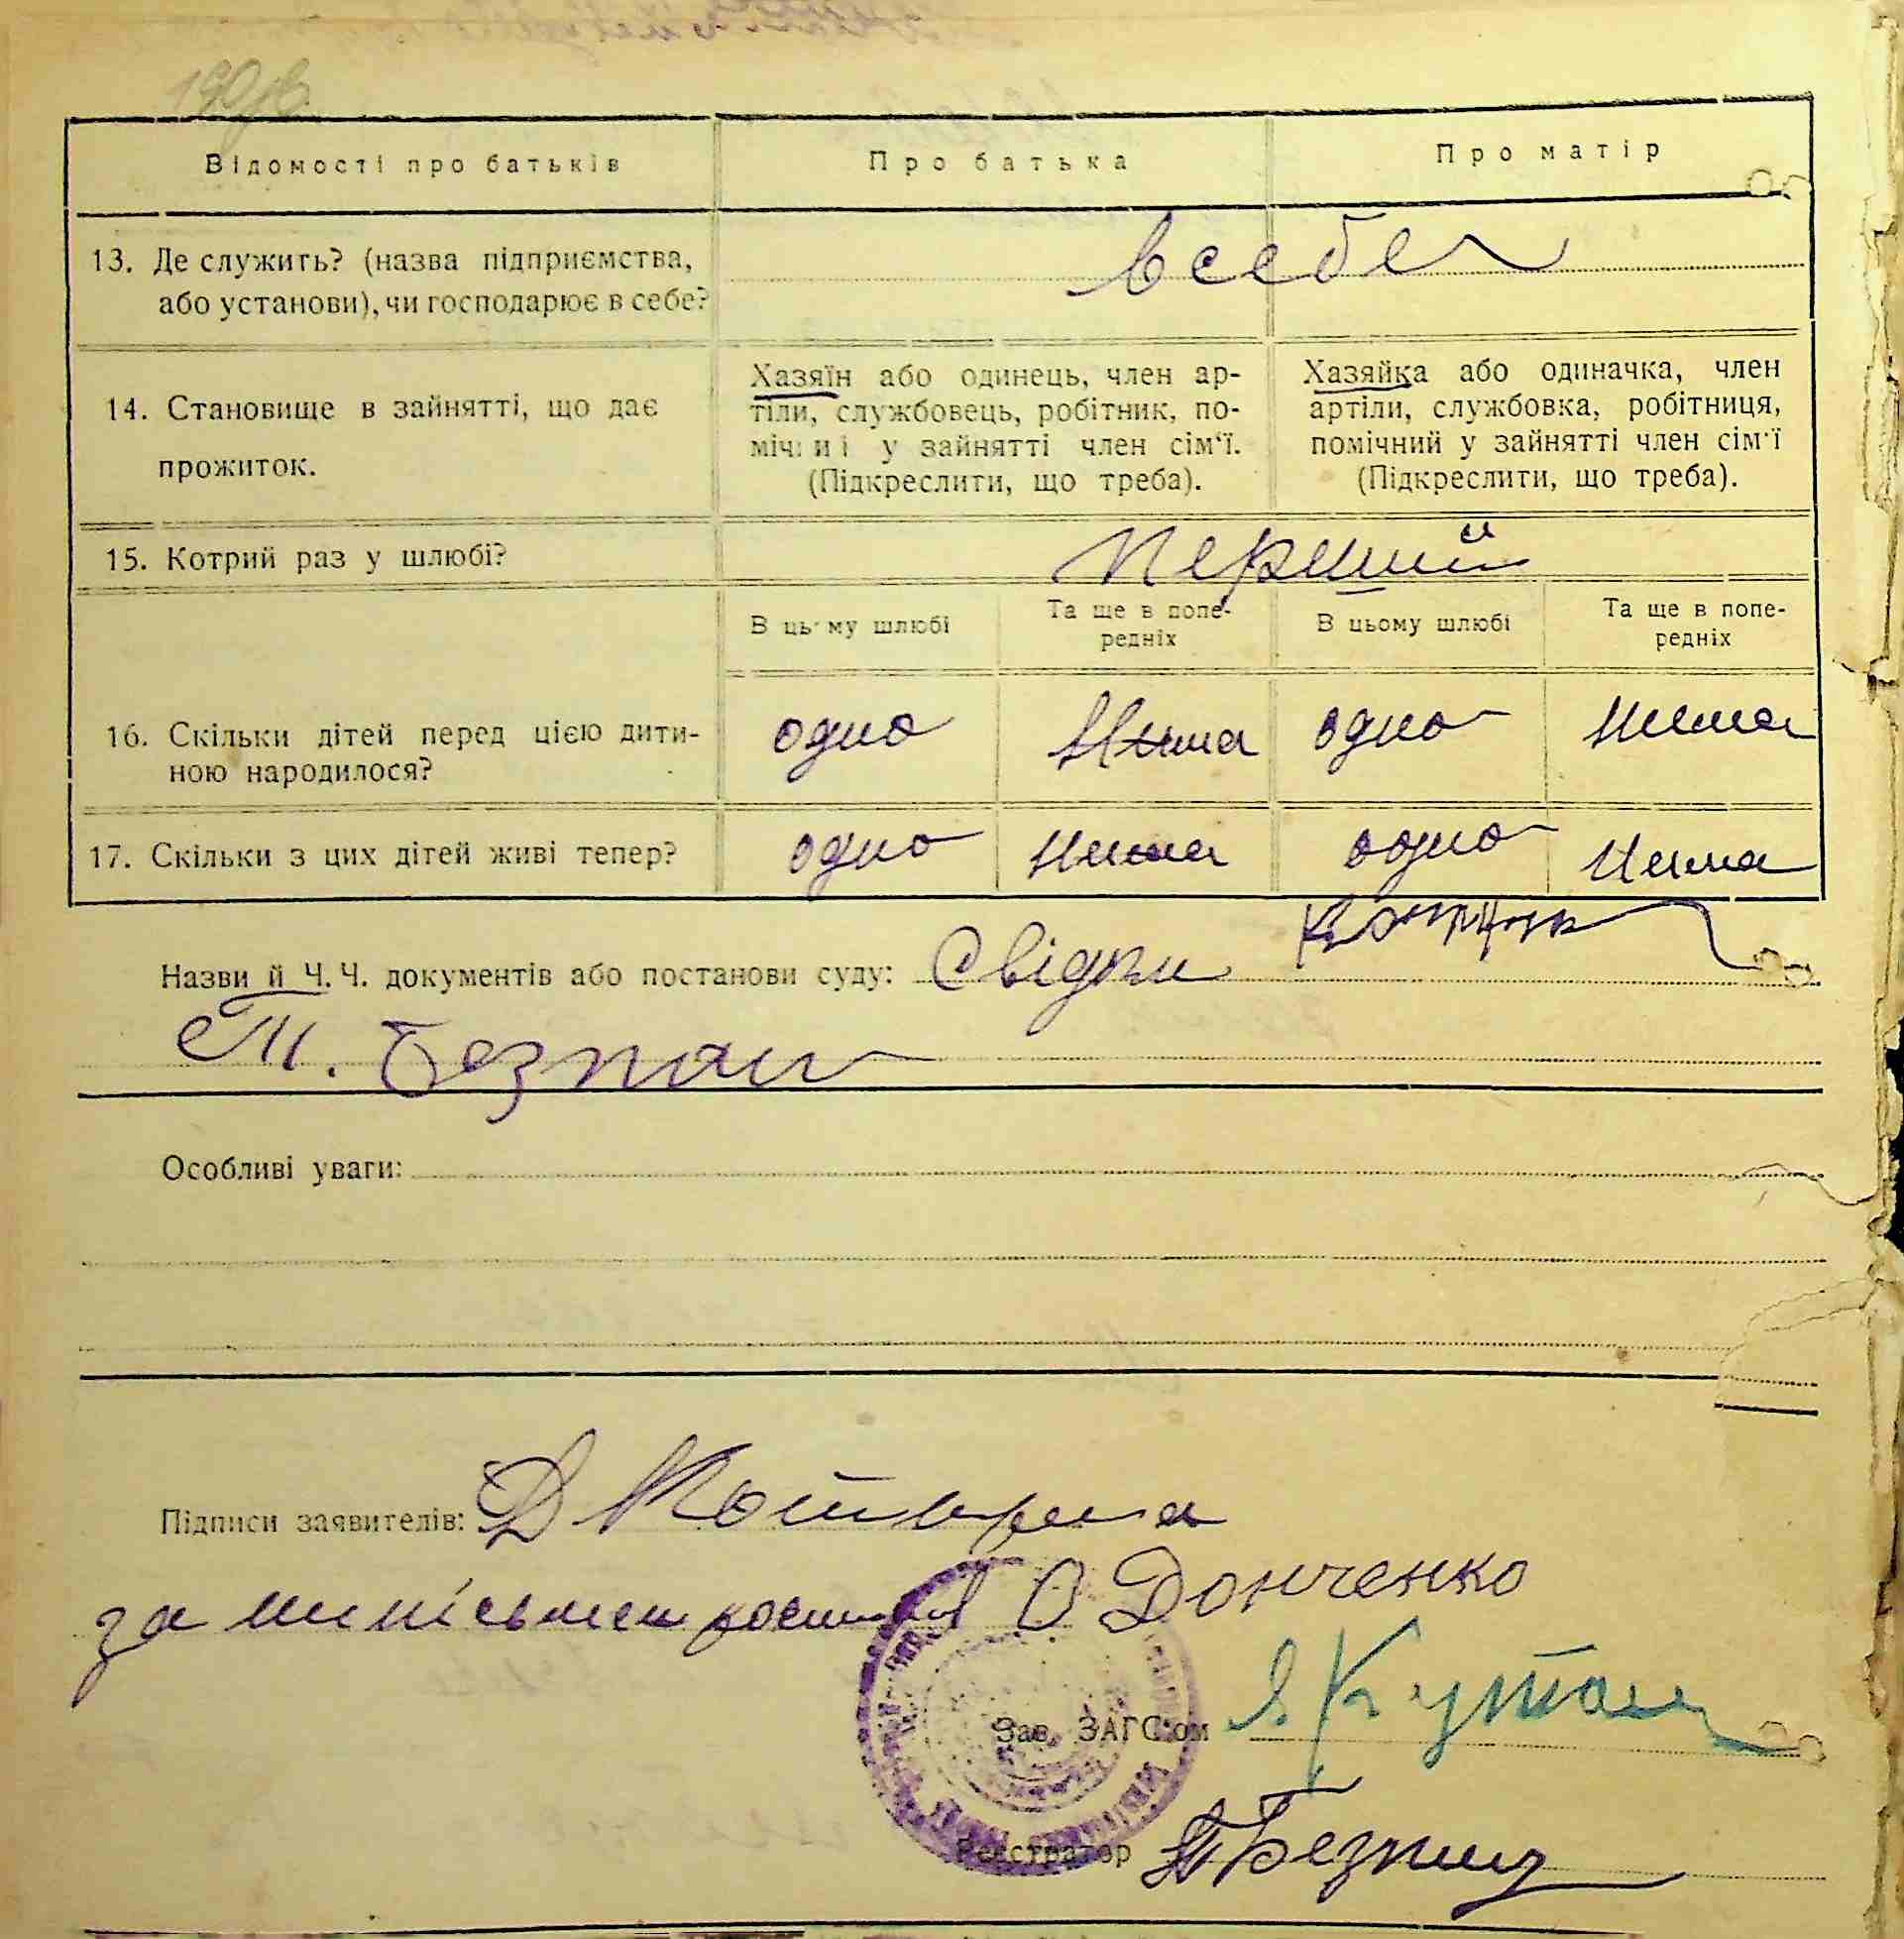 Відомості про батьків Про батька Про матір
13. Де служить? (назва підприємства, або установи), чи господарює в себе?
в себе
14. Становище в зайнятті, що дає прожиток.
Хазяїн або одинець, член ар-
тіли, службовець, робітник, по-
мічний у зайнятті член сім'ї.
(Підкреслити, що треба).
Хазяйка або одиначка, член
артіли, службовка, робітниця,
помічний у зайнятті член сім'ї
(Підкреслити, що треба).
15. Котрий раз у шлюбі? перший
В цьому шлюбі Та ще в попе-
редніх В цьому шлюбі Та ще в попе-
редніх
16. Скільки дітей перед цією дити-
ною народилося?
одно Нема одно Нема
17. Скільки з цих дітей живі тепер? одно Нема одно Нема
Назви й Ч.Ч. документів або постанови суду: Свідки
Особливі уваги:
Підписи заявителів: Д
за О Донченко
Зав. ЗАГС'ом Я.
Реєстратор